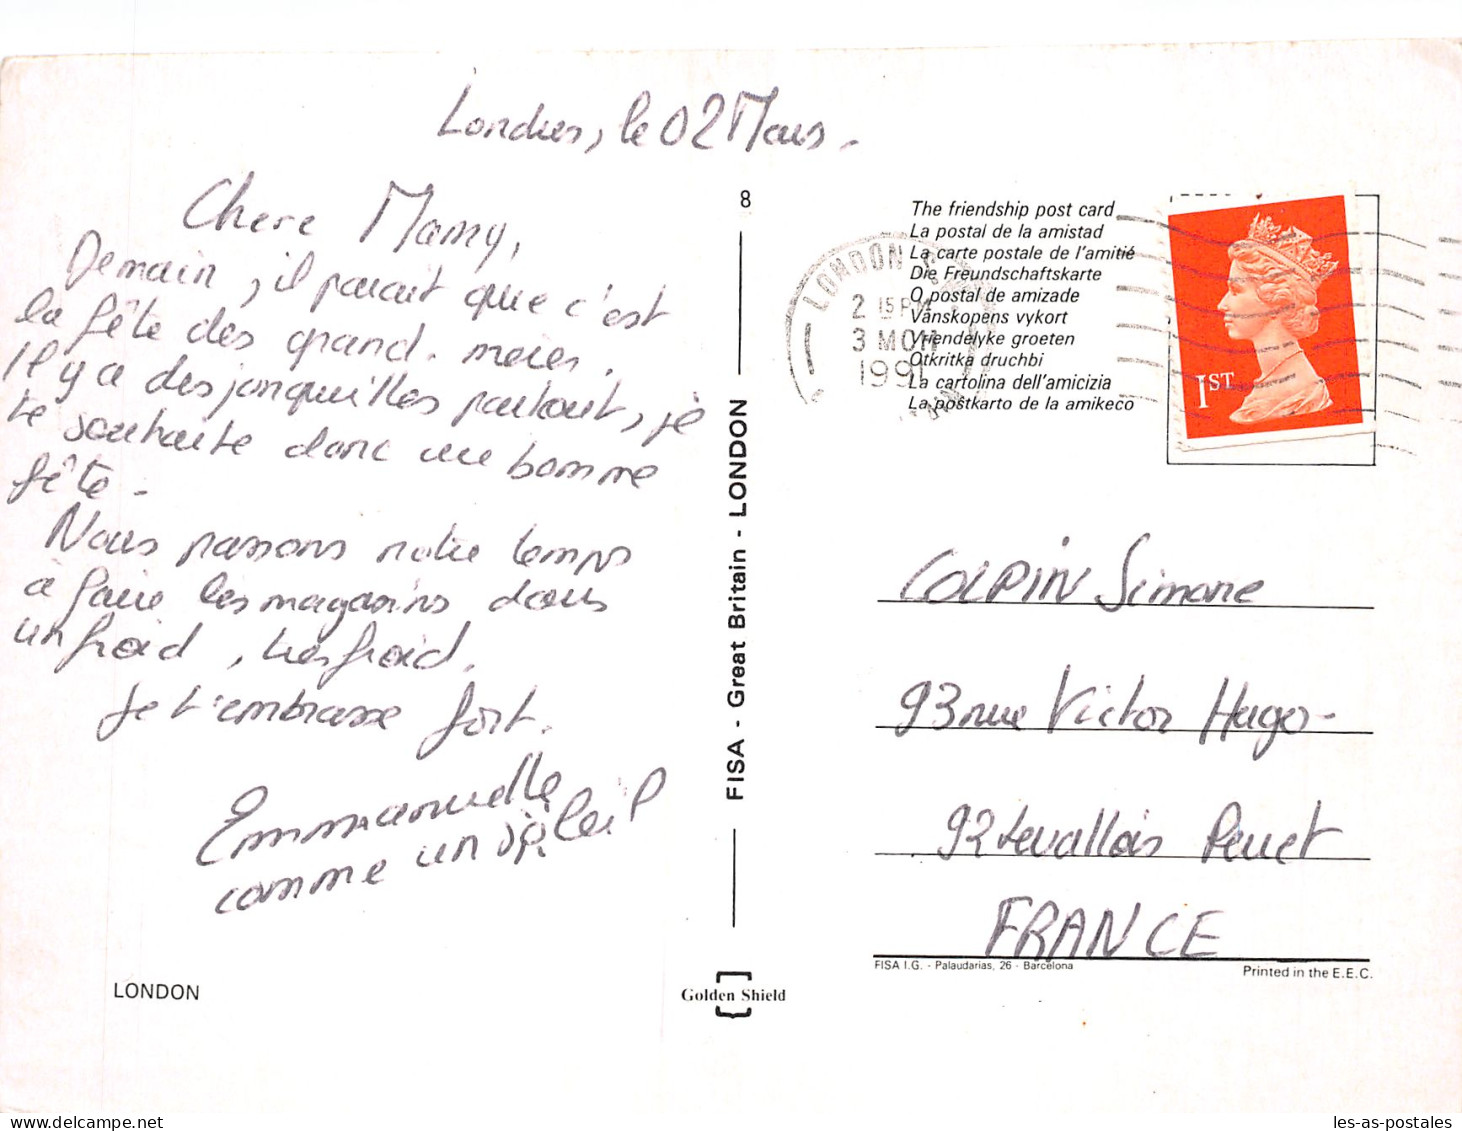 Londres, le 02 Mars.
Chere Mamy,
Demain, il parait que c'est
la fête des grand-meres.
Il y a des jonquilles partout, je
te souhaite donc une bonne
fête.
Nous passons notre temps
à faire les magasins dans
un froid, tres froid.
Je t'embrasse fort.
Emmanuelle
comme un soleil
LONDON
8
FISA - Great Britain - LONDON
Golden Shield
The friendship post card
La postal de la amistad
La carte postale de l'amitié
Die Freundschaftskarte
O postal de amizade
Vänskopens vykort
Vriendelyke groeten
Otkritka druchbi
La cartolina dell'amicizia
La postkarto de la amikeco
LONDON
2 15 PM
3 MCH
1991
1ST
COLPIN Simone
93 rue Victor Hugo -
92 Levallois Perret
FRANCE
FISA I.G. - Palaudarias, 26 - Barcelona
Printed in the E.E.C.
les-as-postales